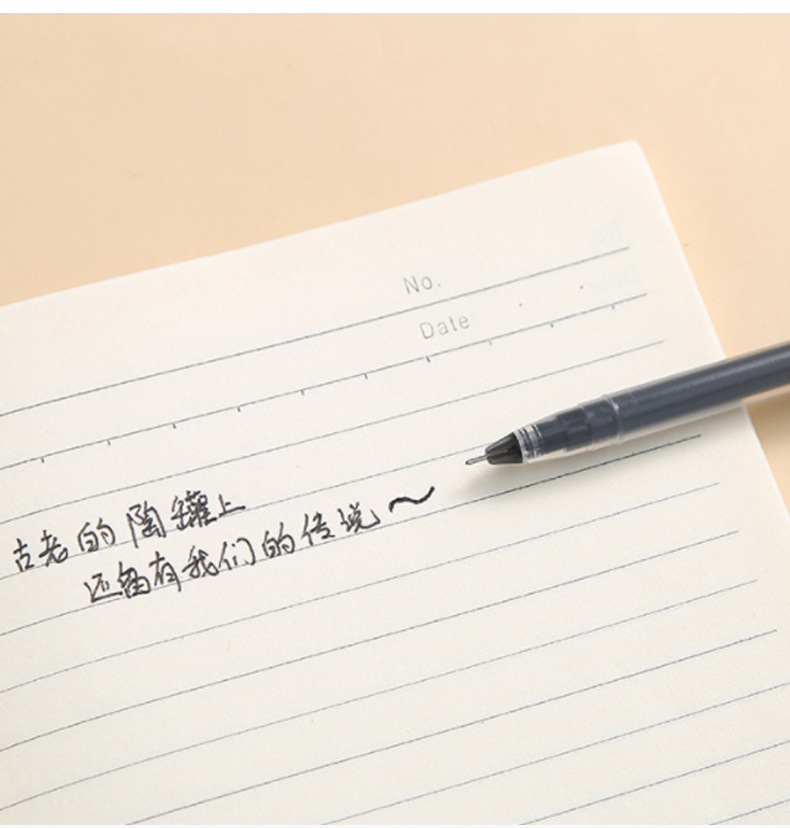 No.
Date
古老的陶罐上
还留有我们的传说～